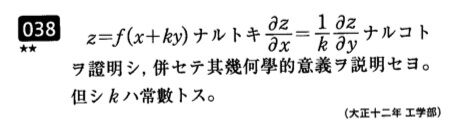 038 z=f(x+ky)ナルトキ∂z/∂x=1/k ∂z/∂yナルコト
★★ ヲ證明シ,併セテ其幾何學的意義ヲ説明セヨ。
但シkハ常數トス。
(大正十二年 工学部)